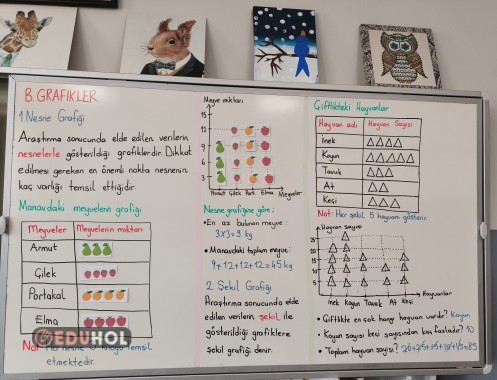 B. GRAFIKLER
1. Nesne Grafiği
Araştırma sonucunda elde edilen verilerin
nesnelerle gösterildiği grafiklerdir. Dikkat
edilmesi gereken en önemli nokta nesnenin
kaç varlığı temsil ettiğidir.
Manavdaki meyvelerin grafiği
Meyveler Meyvelerin miktarı
Armut
Çilek
Portakal
Elma
Not: Her nesne 3 kiloyu temsil
etmektedir.
EDUHOL
Meyve miktarı
15
12
9
6
3
Armut Çilek Port. Elma Meyveler
Nesne grafiğine göre;
• En az bulunan meyve:
3x3=9 kg
• Manavdaki toplam meyve:
9+12+12+12=45 kg
2. Şekil Grafiği
Araştırma sonucunda elde
edilen verilerin şekil ile
gösterildiği grafiklere
şekil grafiği denir.
Çiftlikteki Hayvanlar
Hayvan adı Hayvan Sayısı
İnek
Koyun
Tavuk
At
Keçi
Not: Her şekil 5 hayvanı gösterir.
Hayvan sayısı
25
20
15
10
5
İnek Koyun Tavuk At Keçi Hayvanlar
• Çiftlikte en çok hangi hayvan vardır? Koyun
• Koyun sayısı keçi sayısından kaç fazladır? 10
• Toplam hayvan sayısı?